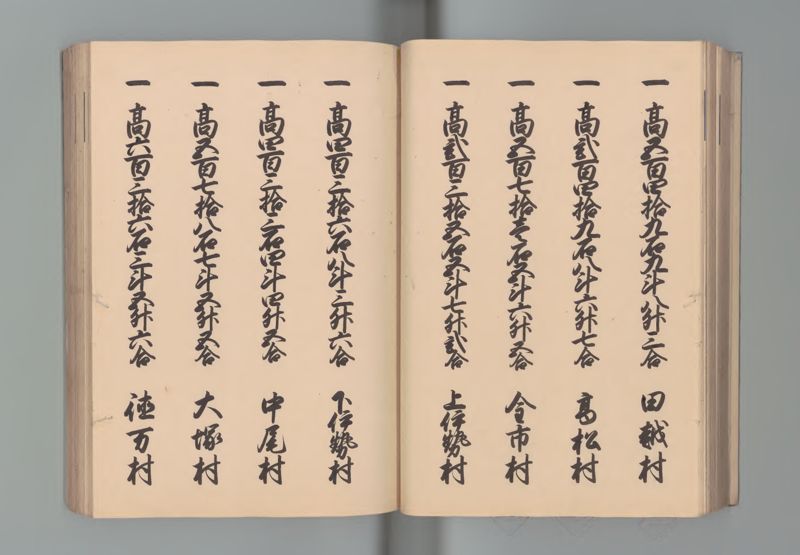 一 髙五百四拾九石九斗八升三合 田越村
一 髙弐百四拾九石八斗六升七合 髙松村
一 髙五百七拾壱石五斗六升五合 今市村
一 髙弐百三拾五石五斗七升弐合 上伊勢村
一 髙四百三拾六石八斗三升六合 下伊勢村
一 髙四百三拾三石四斗四升五合 中尾村
一 髙五百七拾八石七斗五升五合 大塚村
一 髙六百三拾六石三斗五升六合 徳万村